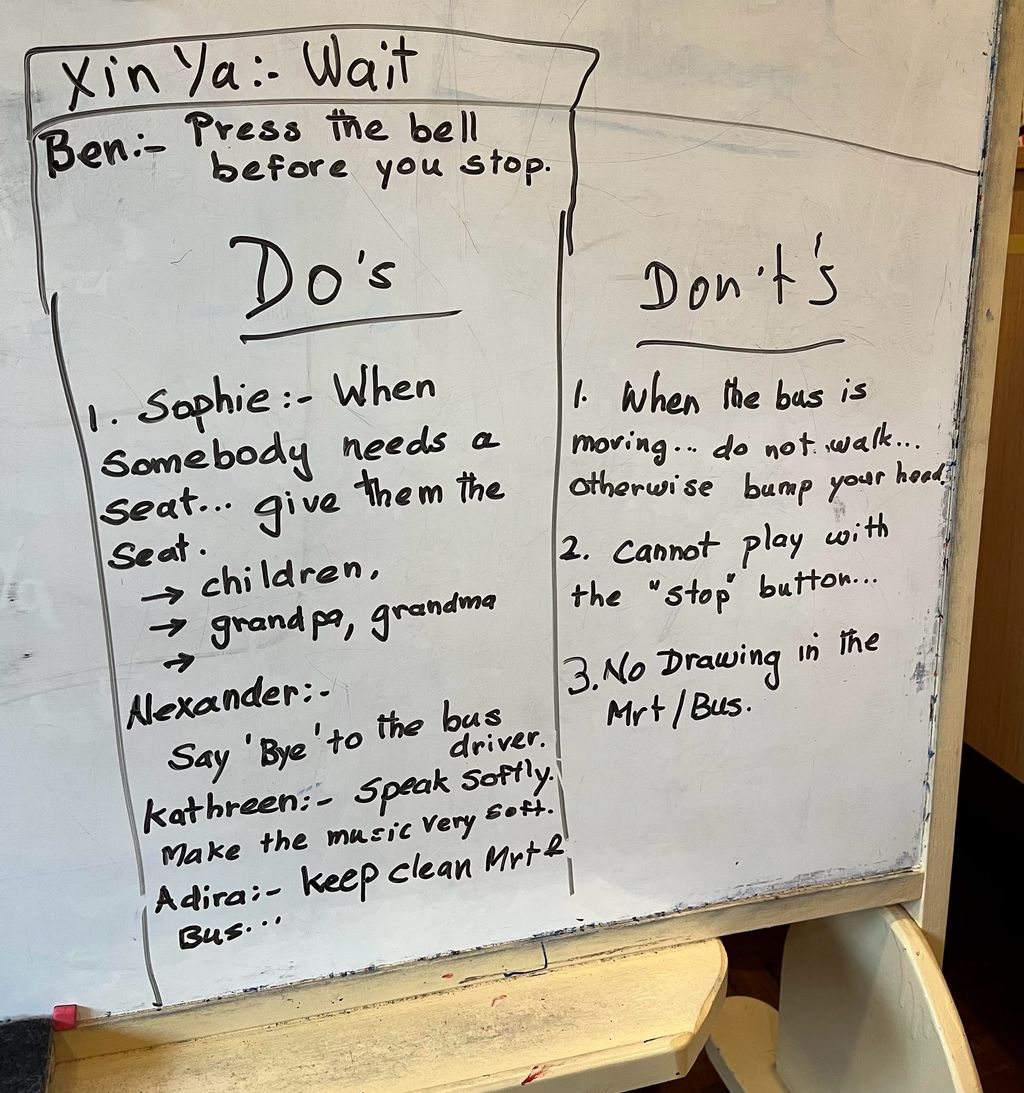 Xin Ya:- Wait
Ben:- Press the bell
before you stop.
Do's
1. Sophie:- When
somebody needs a
seat... give them the
seat.
→ children,
→ grandpa, grandma
→
Alexander:-
Say 'Bye' to the bus
driver.
Kathreen:- speak softly.
Make the music very soft.
Adira:- keep clean Mrt &
Bus...
Don't's
1. When the bus is
moving... do not walk...
otherwise bump your head.
2. Cannot play with
the "stop" button...
3. No Drawing in the
Mrt/Bus.